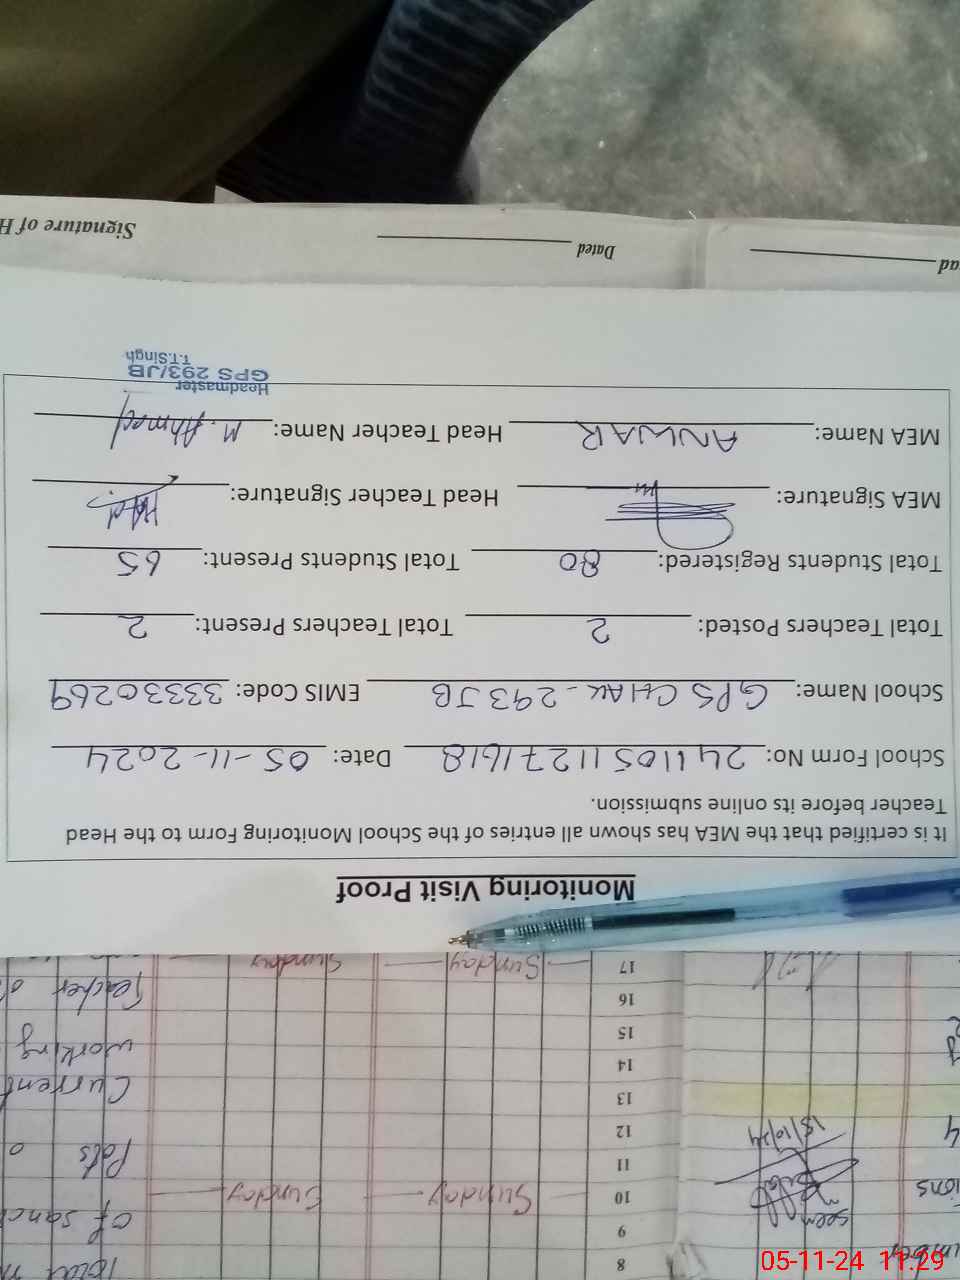 Monitoring Visit Proof
It is certified that the MEA has shown all entries of the School Monitoring Form to the Head
Teacher before its online submission.
School Form No: 241105112711618 Date: 05-11-2024
School Name: GPS CHAK-293 JB EMIS Code: 33330269
Total Teachers Posted: 2 Total Teachers Present: 2
Total Students Registered: 80 Total Students Present: 65
MEA Signature: Head Teacher Signature:
MEA Name: ANWAR Head Teacher Name: M. Ahmad
Headmaster
GPS 293/JB
T.T.Singh
Dated
Signature of H
ad
8
9
10 Sunday Sunday
11
12
13
14
15
16
17 Sunday Sunday
Total
of sanc
Posts
Current
working
Teacher
umber
ions
4
seen
15/10/24
05-11-24 11:29